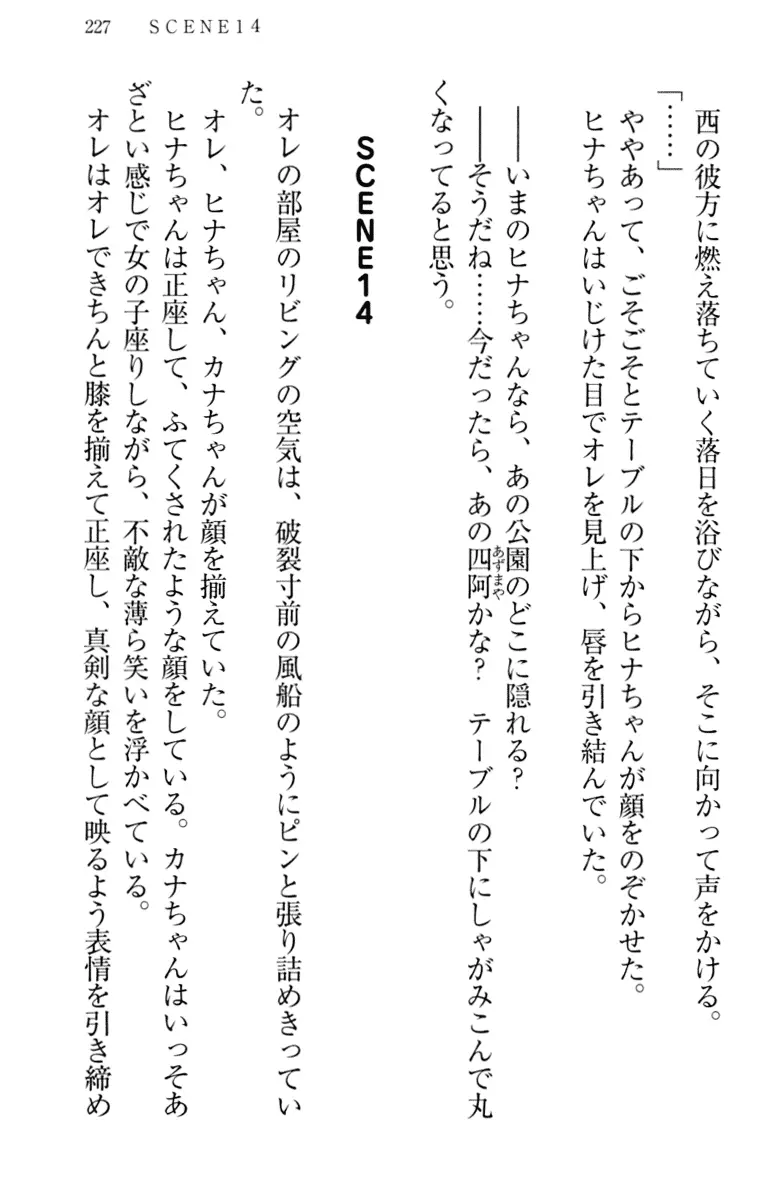 227 SCENE14
西の彼方に燃え落ちていく落日を浴びながら、そこに向かって声をかける。
「……」
ややあって、ごそごそとテーブルの下からヒナちゃんが顔をのぞかせた。
ヒナちゃんはいじけた目でオレを見上げ、唇を引き結んでいた。
――いまのヒナちゃんなら、あの公園のどこに隠れる？
――そうだね……今だったら、あの四阿かな？　テーブルの下にしゃがみこんで丸
あずまや
くなってると思う。
SCENE14
オレの部屋のリビングの空気は、破裂寸前の風船のようにピンと張り詰めきってい
た。
オレ、ヒナちゃん、カナちゃんが顔を揃えていた。
ヒナちゃんは正座して、ふてくされたような顔をしている。カナちゃんはいっそあ
ざとい感じで女の子座りしながら、不敵な薄ら笑いを浮かべている。
オレはオレできちんと膝を揃えて正座し、真剣な顔として映るよう表情を引き締め